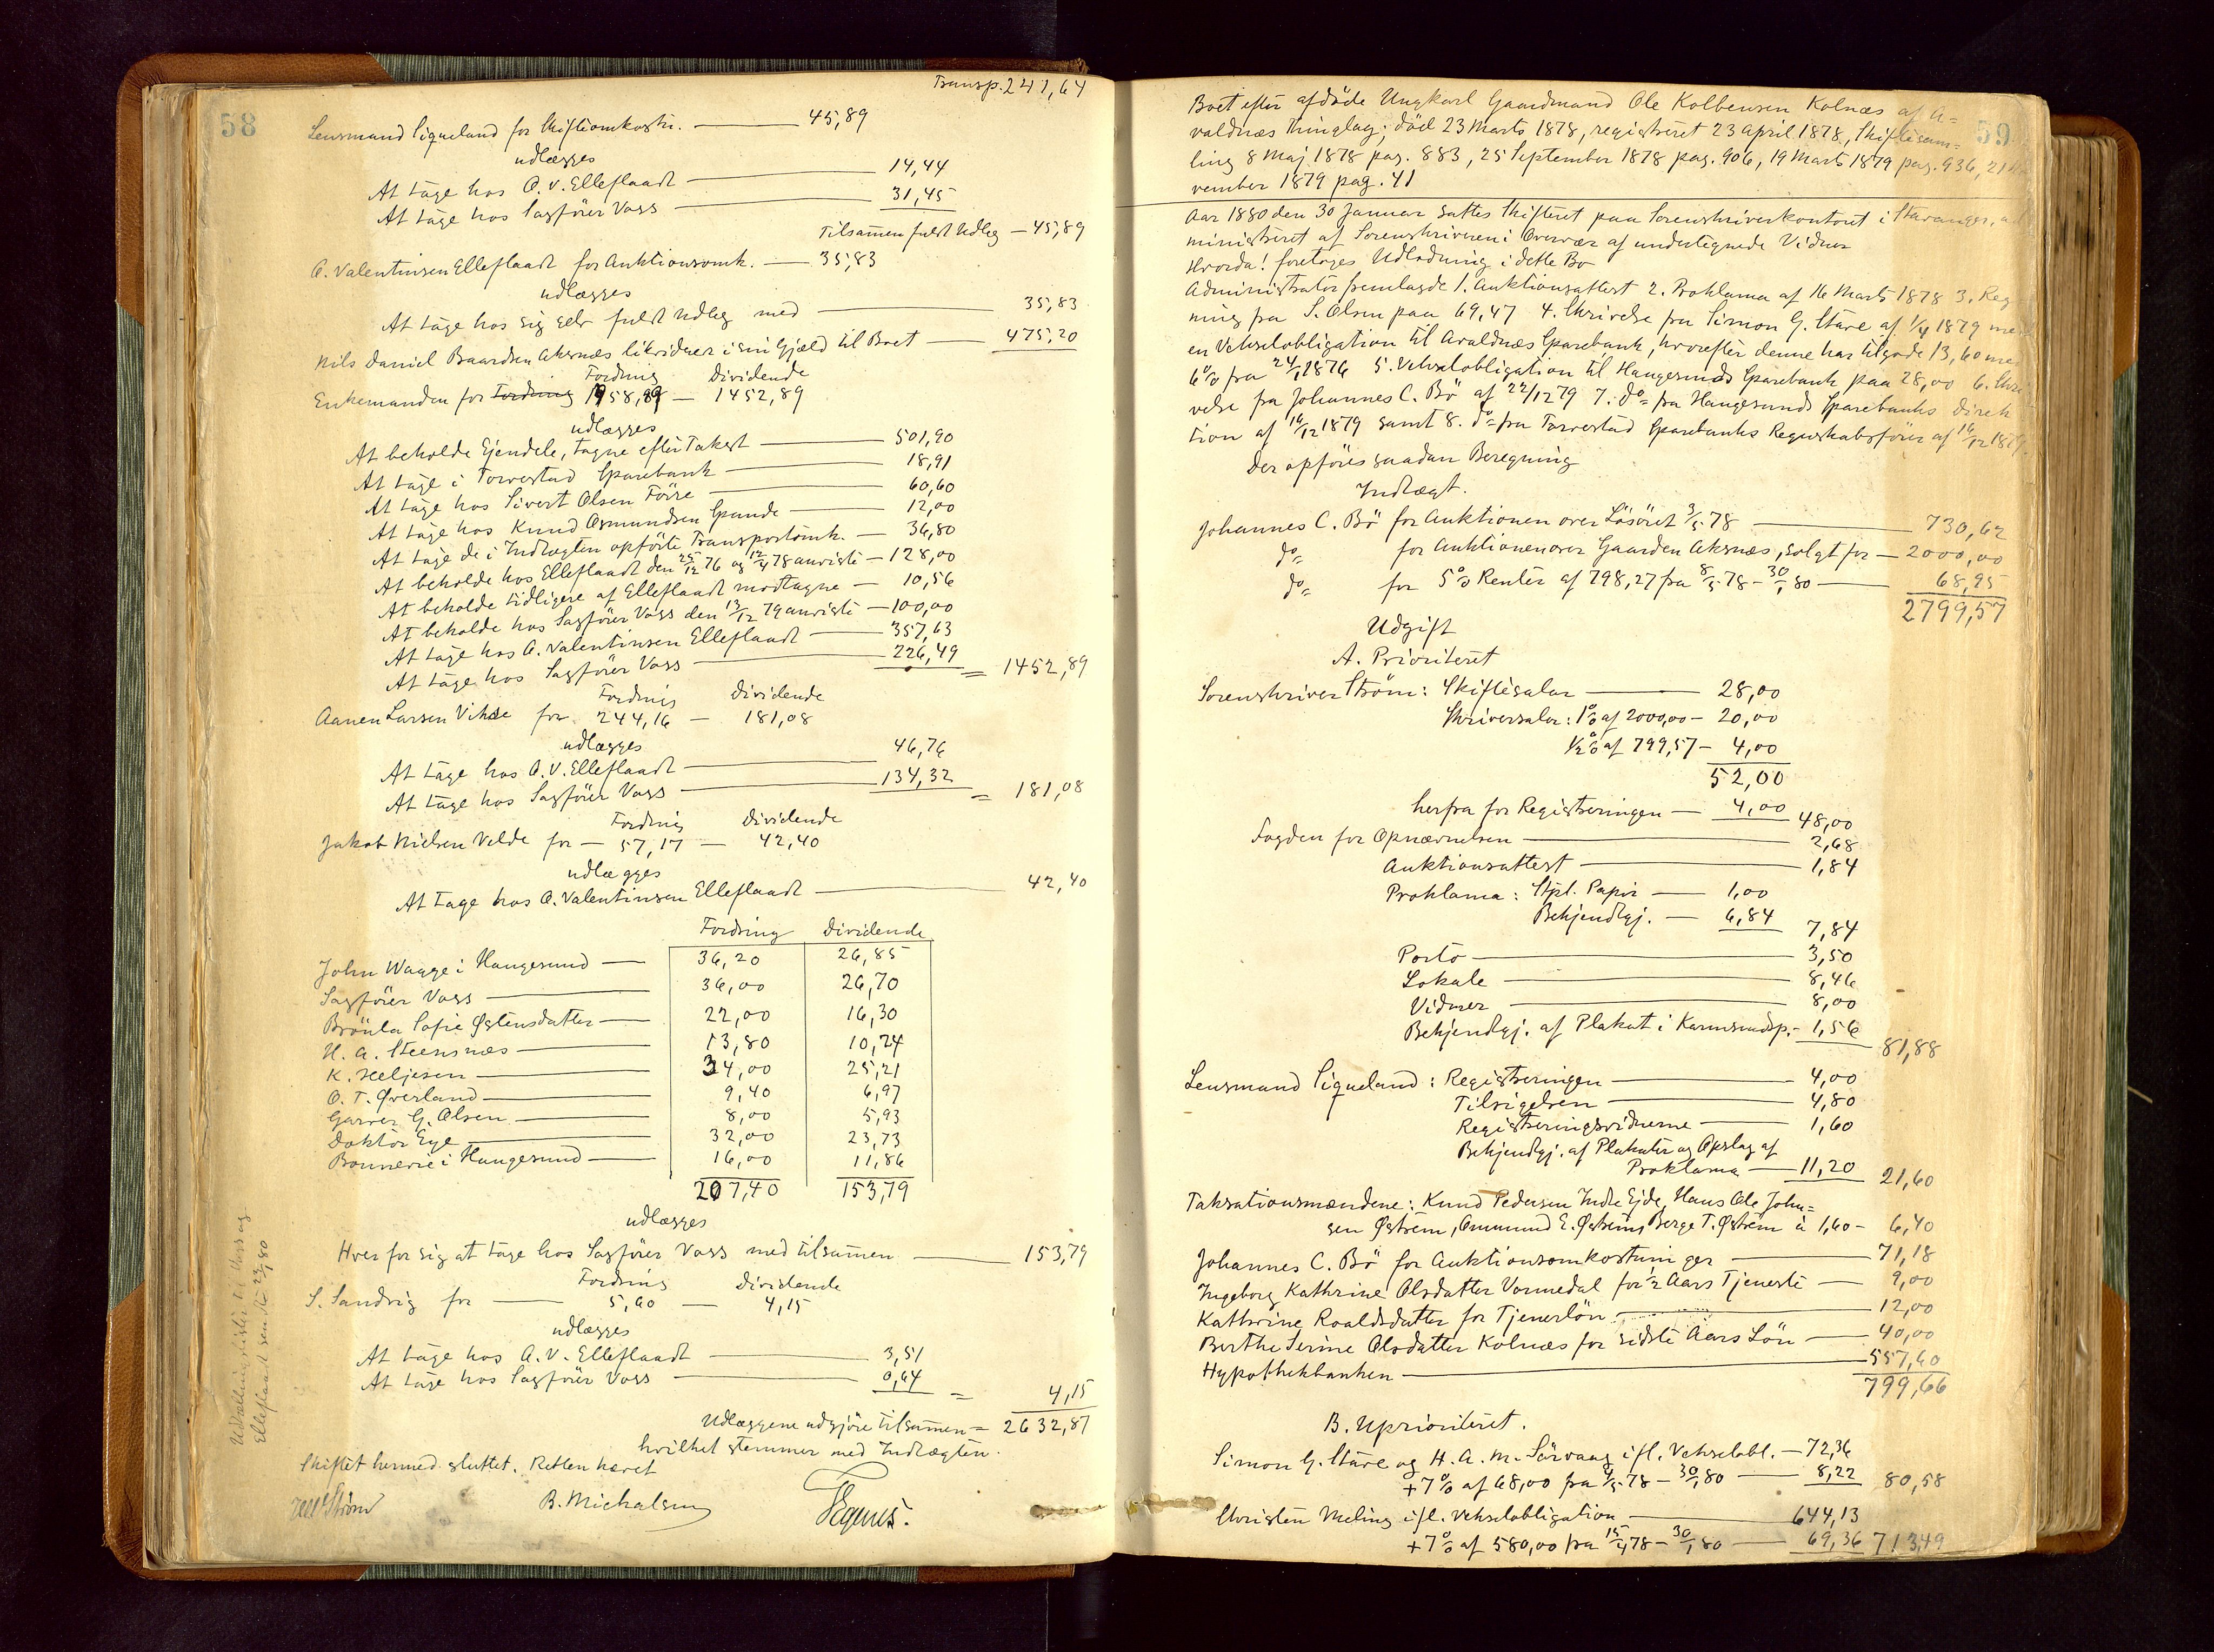 58
Transp. 241,64
Lensmand Siqueland for Skifteomkostn. — 45,89
udlægges
At tage hos O. V. Elleflaadt — 14,44
At tage hos Sagförer Vass — 31,45
Tilsamen fuldt Udlæg — 45,89
O. Valentinsen Elleflaadt for Auktionsomk. — 35,83
udlægges
At tage hos sig selv fuldt Udlæg med — 35,83
Nils Daniel Baardsen Aksnæs likviderer i sin Gjæld til Boet — 475,20
Fordring Dividende
Enkemanden for Fordring 1958,89 — 1452,89
udlægges
At beholde Ejendele, tagne efter Takst — 501,90
At tage i Torvestad Sparebank — 18,91
At tage hos Sivert Olsen Förre — 60,60
At tage hos Knud Osmundsen Spande — 12,00
At tage de i Indtægten opförte Transportomk. — 36,80
At beholde hos Elleflaadt den 25/12 76 og 12/4 78 anviste — 128,00
At beholde tidligere af Elleflaadt modtagne — 10,56
At beholde hos Sagförer Vass den 13/12 79 anviste — 100,00
At tage hos O. Valentinsen Elleflaadt — 357,63
At tage hos Sagförer Vass — 226,49 = 1452,89
Fordring Dividende
Aanen Larsen Vikse for 244,16 — 181,08
udlægges
At tage hos O. V. Elleflaadt — 46,76
At tage hos Sagförer Vass — 134,32 = 181,08
Fordring Dividende
Jakob Nielsen Velde for — 57,17 — 42,40
udlægges
At tage hos O. Valentinsen Elleflaadt — 42,40
Fordring Dividende
John Waage i Haugesund — 36,20 26,85
Sagförer Vass — 36,00 26,70
Brönla Sofie Østensdatter — 22,00 16,30
H. A. Steensnæs — 13,80 10,24
K. Heljesen — 34,00 25,21
O. T. Øverland — 9,40 6,97
Garver G. Olsen — 8,00 5,93
Doktor Eye — 32,00 23,73
Bonnevie i Haugesund — 16,00 11,86
207,40 153,79
udlægges
Hver for sig at tage hos Sagförer Vass med tilsamen — 153,79
Fordring Dividende
S. Sandvig for — 5,60 — 4,15
udlægges
At tage hos O. V. Elleflaadt — 3,51
At tage hos Sagförer Vass — 0,64 = 4,15
Udlæggene udgjöre tilsamen = 2632,87
hvilket stemmer med Indtægten.
Skiftet hermed sluttet. Retten hævet
Ström B. Michalsen
Udtællingslister til Vass og
Elleflaadt sendte 23/2 80
59
Boet efter afdöde Ungkarl Gaardmand Ole Kolbensen Kolnæs af A=
valdnæs Thinglag; död 23 Marts 1878, registreret 23 April 1878, Skiftesam=
ling 8 Maj 1878 pag. 883, 25 September 1878 pag. 906, 19 Marts 1879 pag. 936, 21 No
vember 1879 pag. 41
Aar 1880 den 30 Januar sattes Skifteret paa Sorenskriverkontoret i Stavanger, ad
ministreret af Sorenskriveren i Overvær af undertegnede Vidner
Hvorda! foretoges Udlodning i dette Bo
Administrator fremlagde 1. Auktionsattest 2. Proklama af 16 Marts 1878 3. Reg
ning fra S. Olsen paa 69,47 4. Skrivelse fra Simon G. Stave af 1/4 1879 med
en Vekselobligation til Avaldnæs Sparebank, hvorefter denne har tilgode 13,60 med
6% fra 24/1 1876 5. Vekselobligation til Haugesunds Sparebank paa 28,00 6. Skri
velse fra Johannes C. Bö af 22/12 79 7. do= fra Haugesunds Sparebanks Direk
tion af 16/12 1879 samt 8. do= fra Torvestad Sparebanks Regnskabsförer af 16/12 1879.
Der opföres saadan Beregning
Indtægt.
Johannes C. Bö for Auktionen over Lösöret 3/5 78 — 730,62
do= for Auktionen over Gaarden Aksnæs, solgt for — 2000,00
do= for 5% Renter af 798,27 fra 8/5 78 – 30/1 80 — 68,95
2799,57
Udgift
A. Prioriteret
Sorenskriver Ström: Skiftesalær — 28,00
Skriversalær: 1% af 2000,00 — 20,00
1/2% af 799,57 — 4,00
52,00
herfra for Registreringen — 4,00 48,00
Fogden for Opnævnelsen — 2,68
Auktionsattest — 1,84
Proklama: Stpl. Papir — 1,00
Bekjendtgj. — 6,84 7,84
Porto — 3,50
Lokale — 8,46
Vidner — 8,00
Bekjendtgj. af Plakat i Karmsundsp. — 1,56
81,88
Lensmand Siqueland: Registreringen — 4,00
Tilsigelsen — 4,80
Registreringsvidnerne — 1,60
Bekjendtgj. af Plakater og Opslag af
Proklama — 11,20 21,60
Taksationsmændene: Knud Pedersen Indre Ejde, Hans Ole John=
sen Østrem, Omund E. Østrem, Berge T. Østrem à 1,60 — 6,40
Johannes C. Bö for Auktionsomkostninger — 71,18
Ingeborg Kathrine Olsdatter Vormedal for 1/2 Aars Tjeneste — 9,00
Kathrine Roaldsdatter for Tjenerlön — 12,00
Berthe Serine Olsdatter Kolnæs for sidste Aars Lön — 40,00
Hypothekbanken — 557,60
799,66
B. Uprioriteret.
Simon G. Stave og H. A. M. Sörvaag ifl. Vekselobl. — 72,36
+ 7% af 68,00 fra 4/5 78 – 30/1 80 — 8,22 80,58
Christen Meling ifl. Vekselobligation — 644,13
+ 7% af 580,00 fra 15/5 78 – 30/1 80 — 69,36 713,49